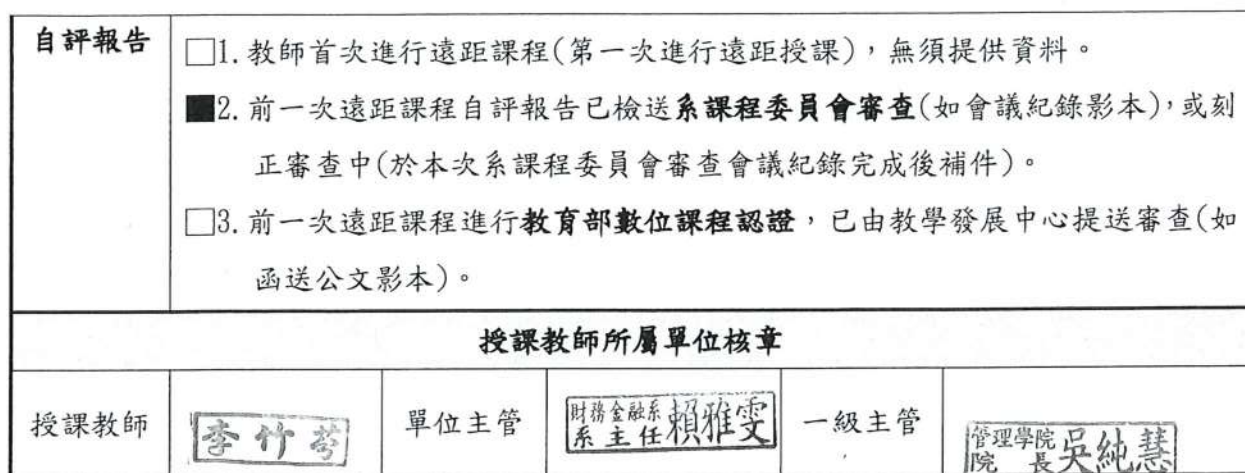 自評報告
□1.教師首次進行遠距課程(第一次進行遠距授課)，無須提供資料。
■2.前一次遠距課程自評報告已檢送系課程委員會審查(如會議紀錄影本)，或刻
正審查中(於本次系課程委員會審查會議紀錄完成後補件)。
□3.前一次遠距課程進行教育部數位課程認證，已由教學發展中心提送審查(如
函送公文影本)。
授課教師所屬單位核章
授課教師
李竹芬
單位主管
財務金融系
系主任賴雅雯
一級主管
管理學院
院長吳純慧